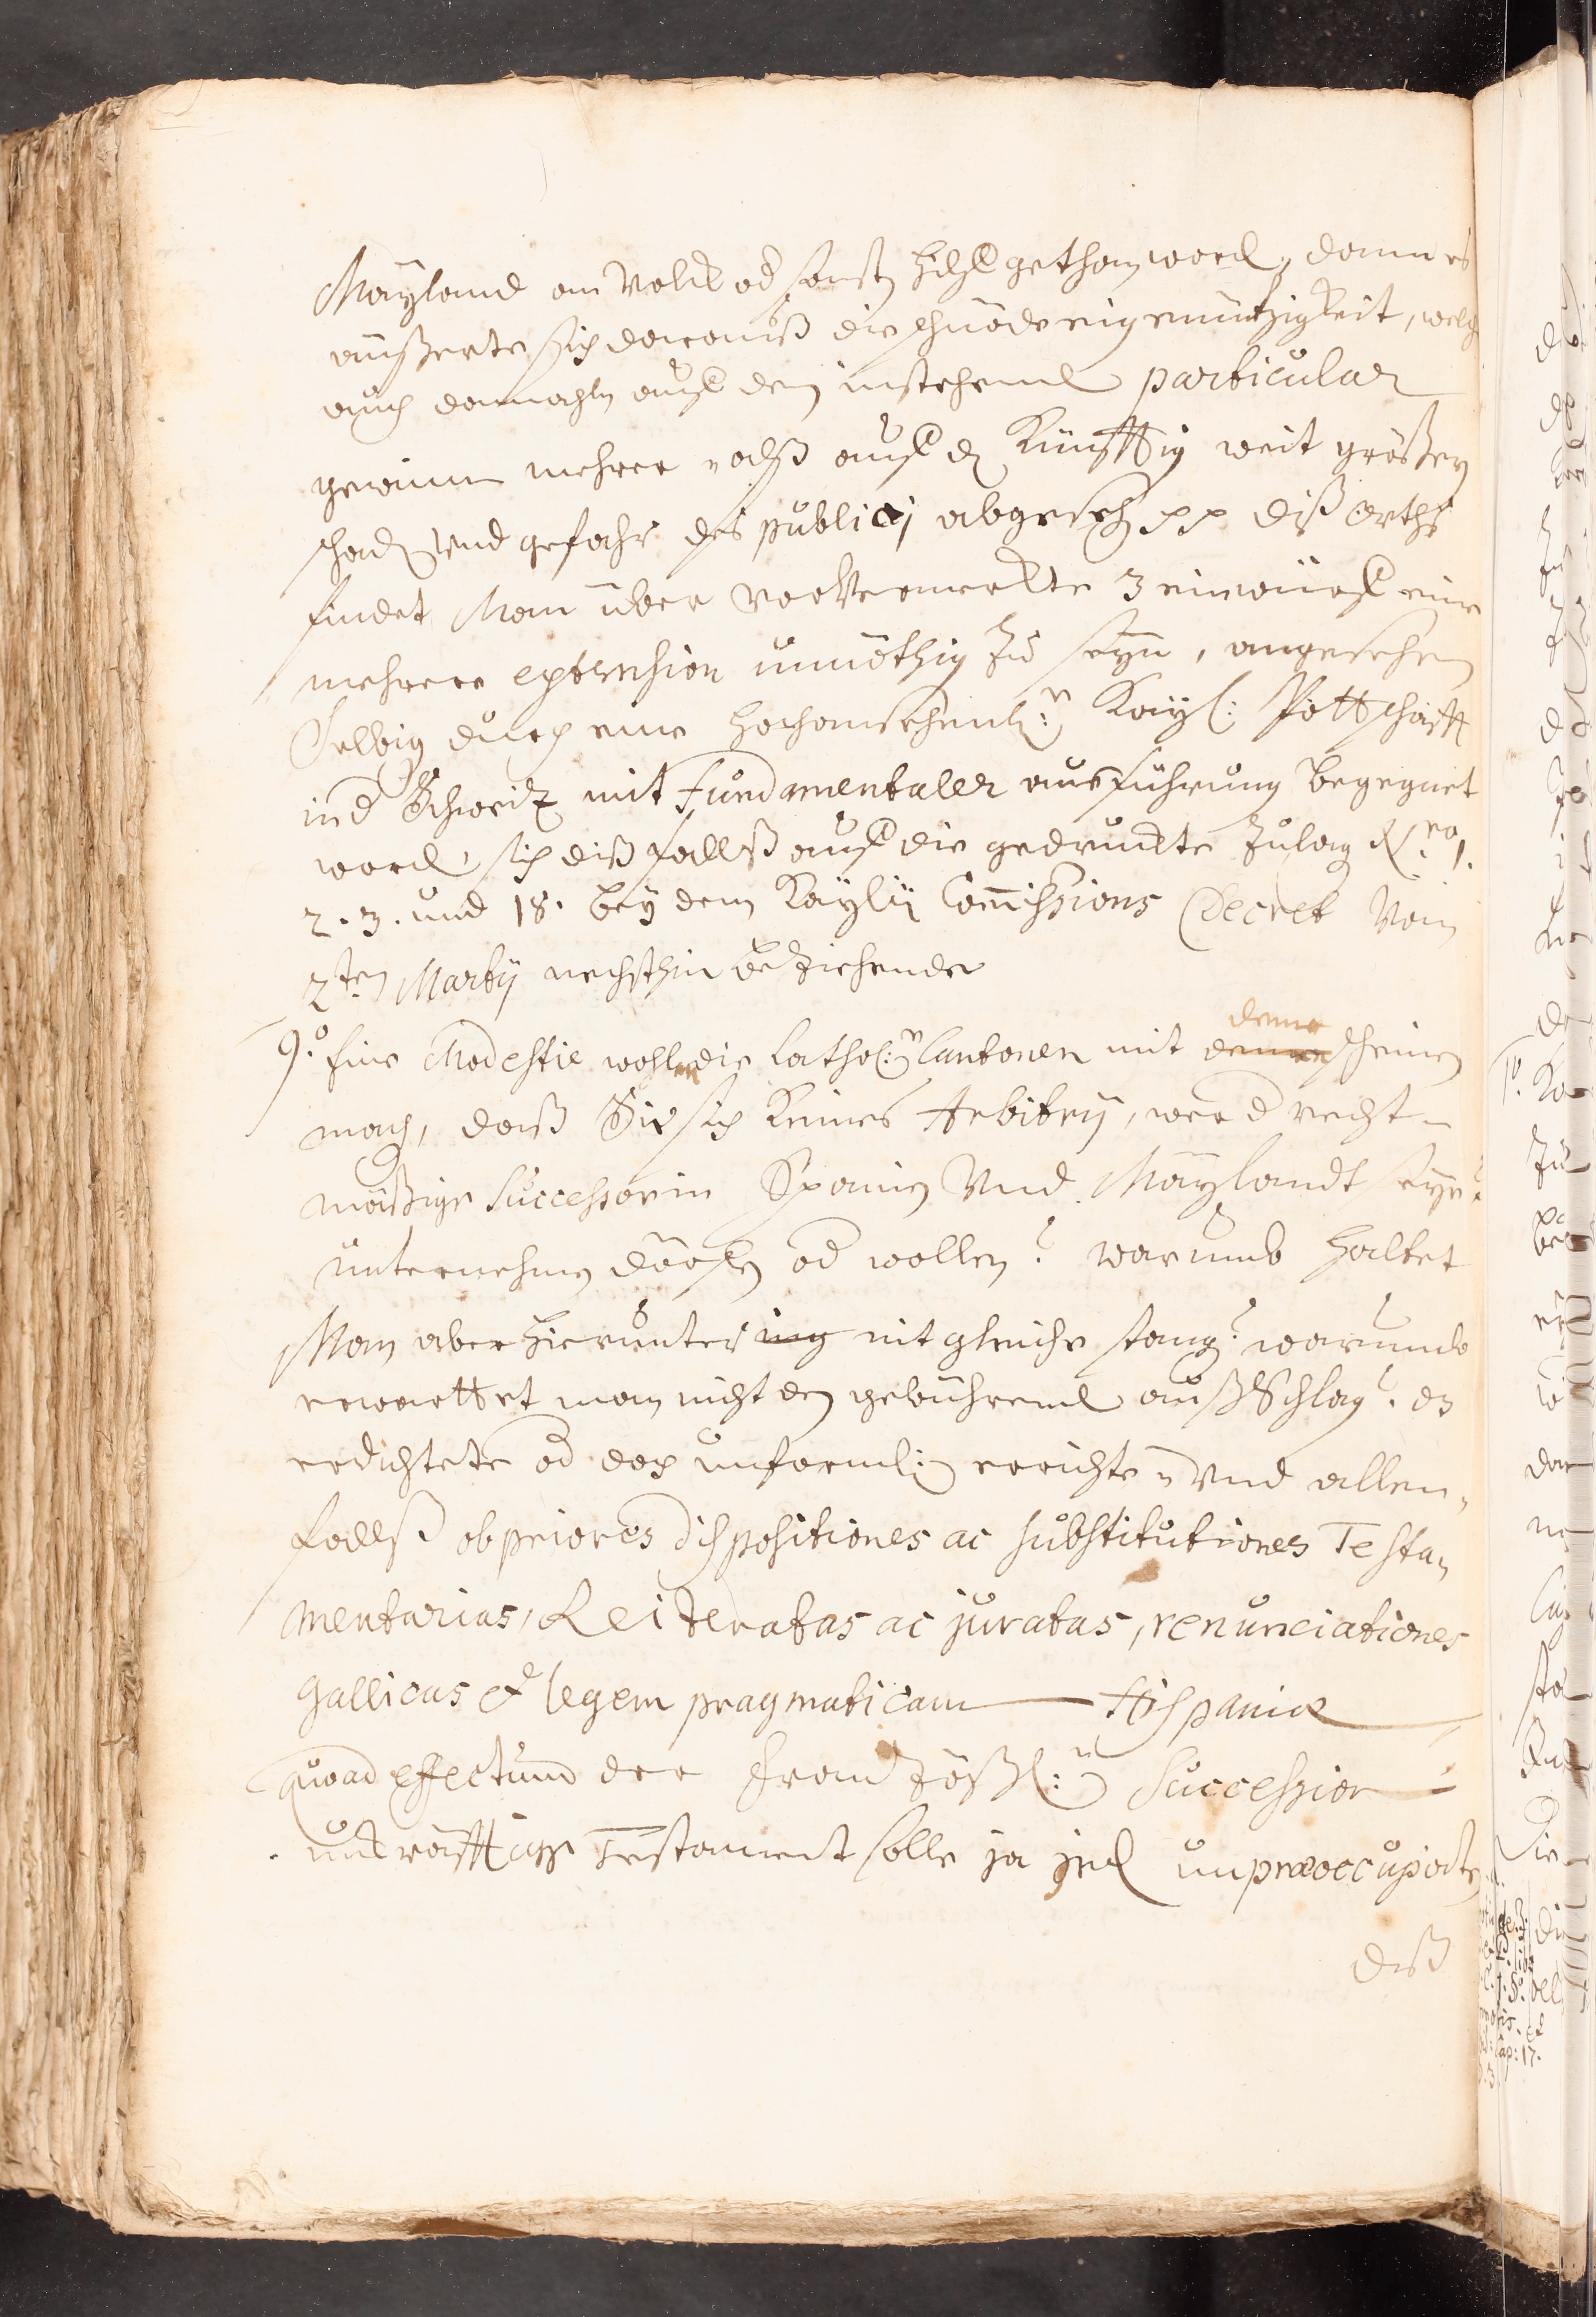 Mayland an Volck od sonst hilff gethan word, dann es
äußerte sich daraus die schnöde eigennützigkeit, welche
auch damahln auff den instehend particular
gewinn mehrer alß auff d Künfftig weit größern
schad Und gefahr des publici abgesehen pp diß orths
findet Man über vorVermerkte 3 einwürff eine
mehrere extension unnöthig zu seyn, angesehen
Selbig durch eine hochansehenl: Kayl: Pottschafft
in d Schweitz mit Fundamentaler ausführung begegnet
word, sich dißfallß auff die gedruckte Zulag N.ro 1.
2. 3. und 18. bey dem Kayl. Commissions Decret Vom
2ten Martij nechsthin beziehende
9.o Eine Modestie wollen die Cathol: Cantonen mit deme scheinen
mach, daß Sie sich Keines Arbitrij, wer d recht-
mäßige Successor in Spanien Und Maylandt seye?
unternehmen dörffen od wollen? warumb haltet
Man aber hierunter nit gleiche stang? warumb
erwarttet man nicht den gebührend außSchlag? dz
erdichtete od doch unförml: errichte- Und allen-
fallß ob priores dispositiones ac substitutiones Testa-
mentarias, Reiteratas ac juratas, renunciationes
Gallicas et legem pragmaticam Hispaniæ
quoad effectum der Frantzößl: Succession
unkräfftige Testament solle ja jed unpræoccupirte
diß